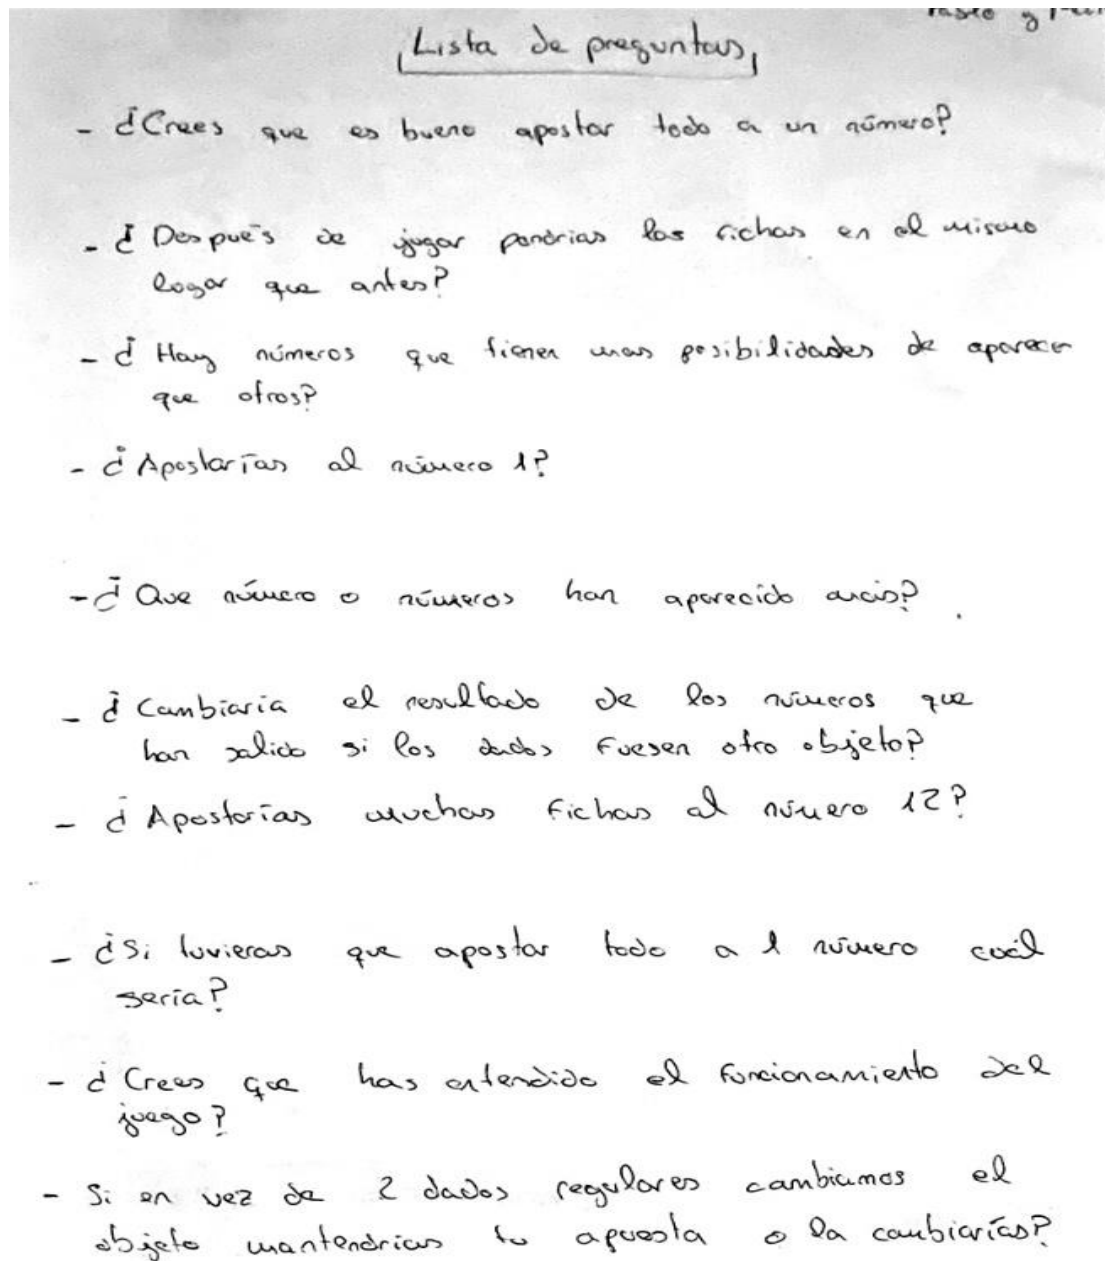 Lista de preguntas
- ¿Crees que es bueno apostar todo a un número?
- ¿Después de jugar pondrias las fichas en el mismo
lugar que antes?
- ¿Hay números que tienen mas posibilidades de aparecer
que otros?
- ¿Apostarías al número 1?
- ¿Que número o números han aparecido más?
- ¿Cambiaria el resultado de los números que
han salido si los dados fuesen otro objeto?
- ¿Apostarías muchas fichas al número 12?
- ¿Si tuvieras que apostar todo a 1 número cuál
sería?
- ¿Crees que has entendido el funcionamiento del
juego?
- Si en vez de 2 dados regulares cambiamos el
objeto mantendrias tu apuesta o la cambiarías?